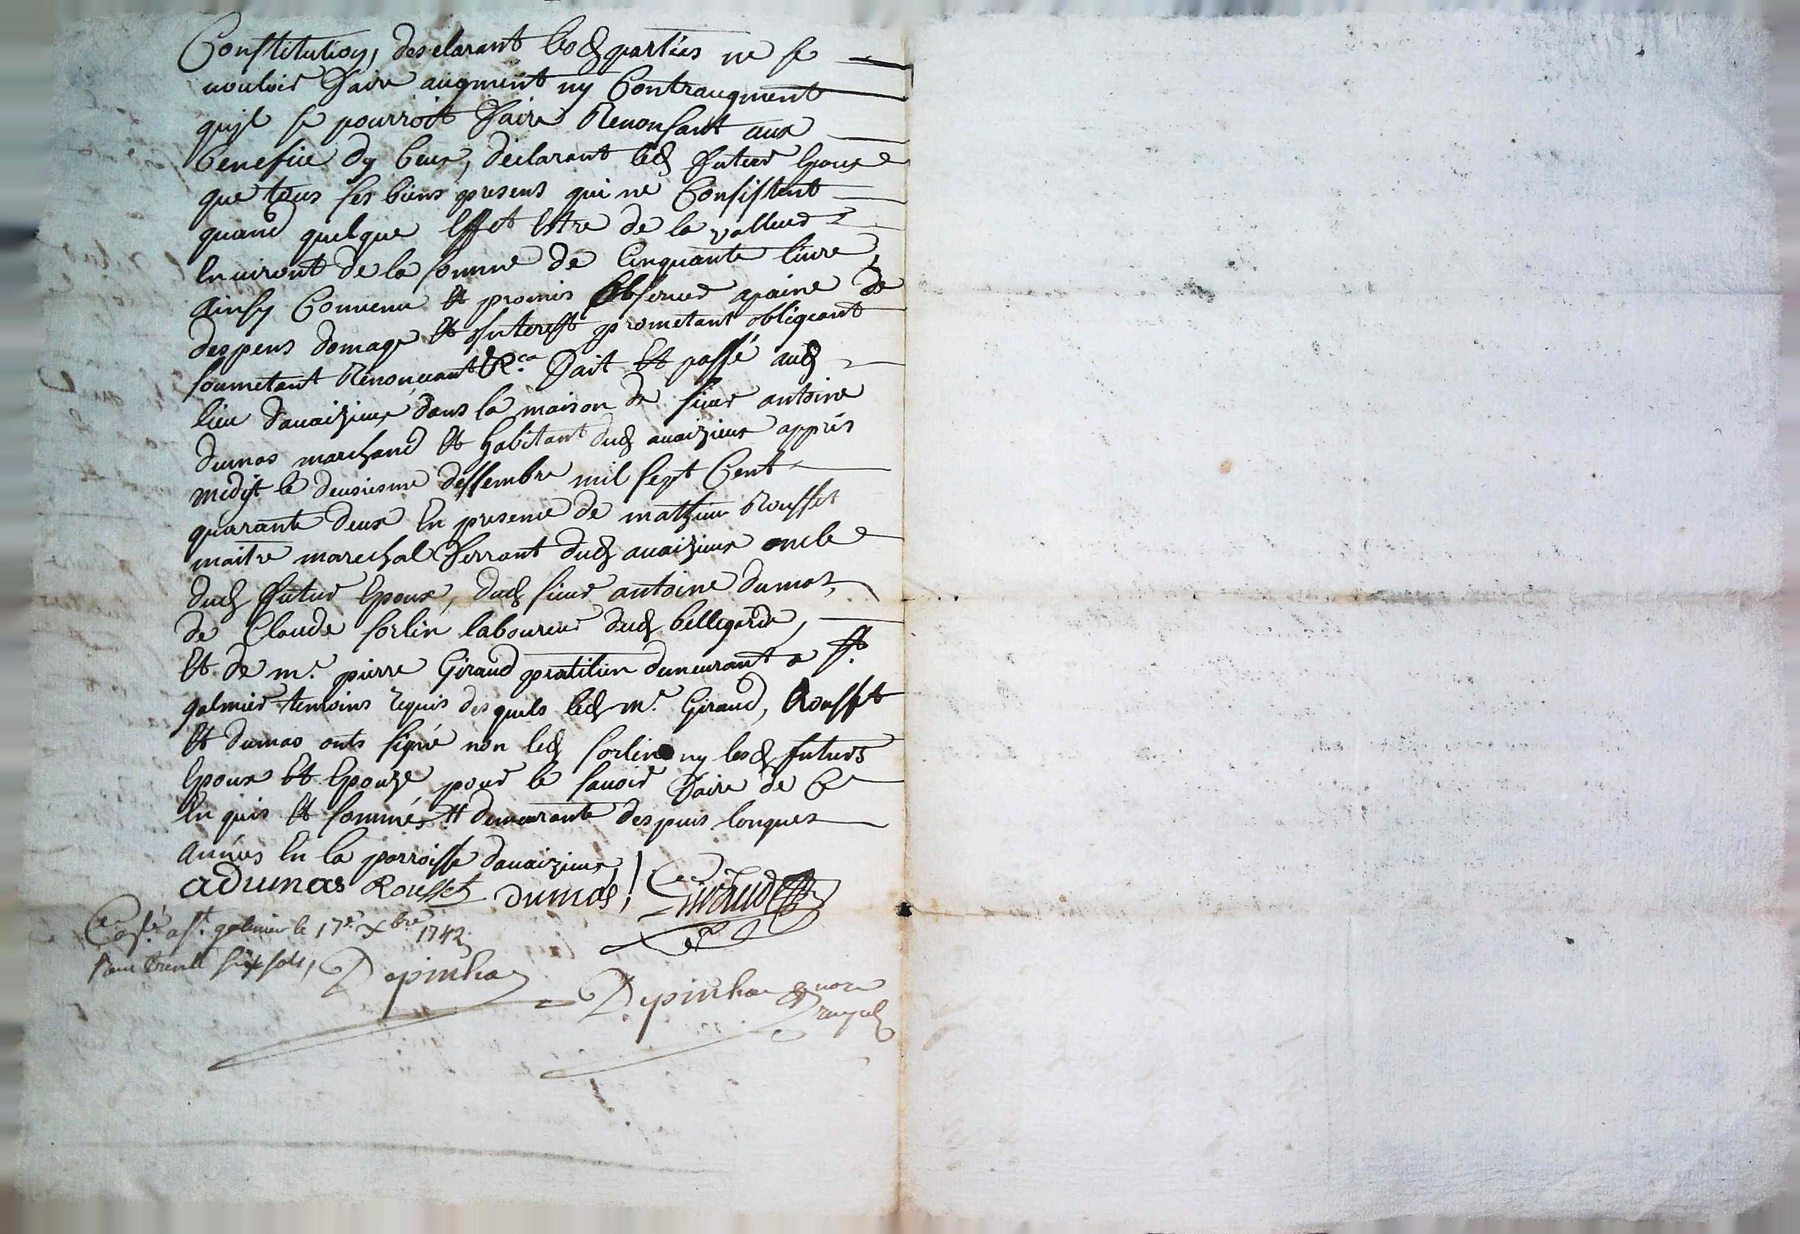 Constitution, desclarant lesd parties ne se
vouloir faire augment ny Contraugment
quil se pourroit faire Renonsant aux
benefice dy ceux, declarant led futur Epoux
que tous ses biens presens qui ne Consistent
quand quelque Effet Estre de la valleur
Environt de la somme de Cinquante livre,
ainsy Convenu Et promis Observer apaine de
despens domage Et Interest prometant obligeant
soumetant Renoncant &Ca fait Et passé aud
lieu davaizieux dans la maison de sieur antoine
dumas marchand Et habitant dud avaizieux appres
midyt le deusiesme dessembre mil sept Cent
quarante deux En presence de mathieu Rousset
maitre marechal ferrant dud avaizieux oncle
dud futur Epoux, dud sieur antoine dumas,
de Claude sorlin laboureur dud bellegarde,
Et de mr pierre Giraud pratitien demeurant a st
galmier temoins requis desquels led mr Giraud, Rousset
Et dumas onts signé non led sorlin ny lesd futurs
Epoux Et Epouze pour le savoir faire de Ce
En quis Et sommés Et demeurante despuis longues
années En la parroisse davaizieux,
adumas Rousset dumas, Giraud
a st galmier le 17e Xbre 1742
six sols, Depinhac
Depinhac